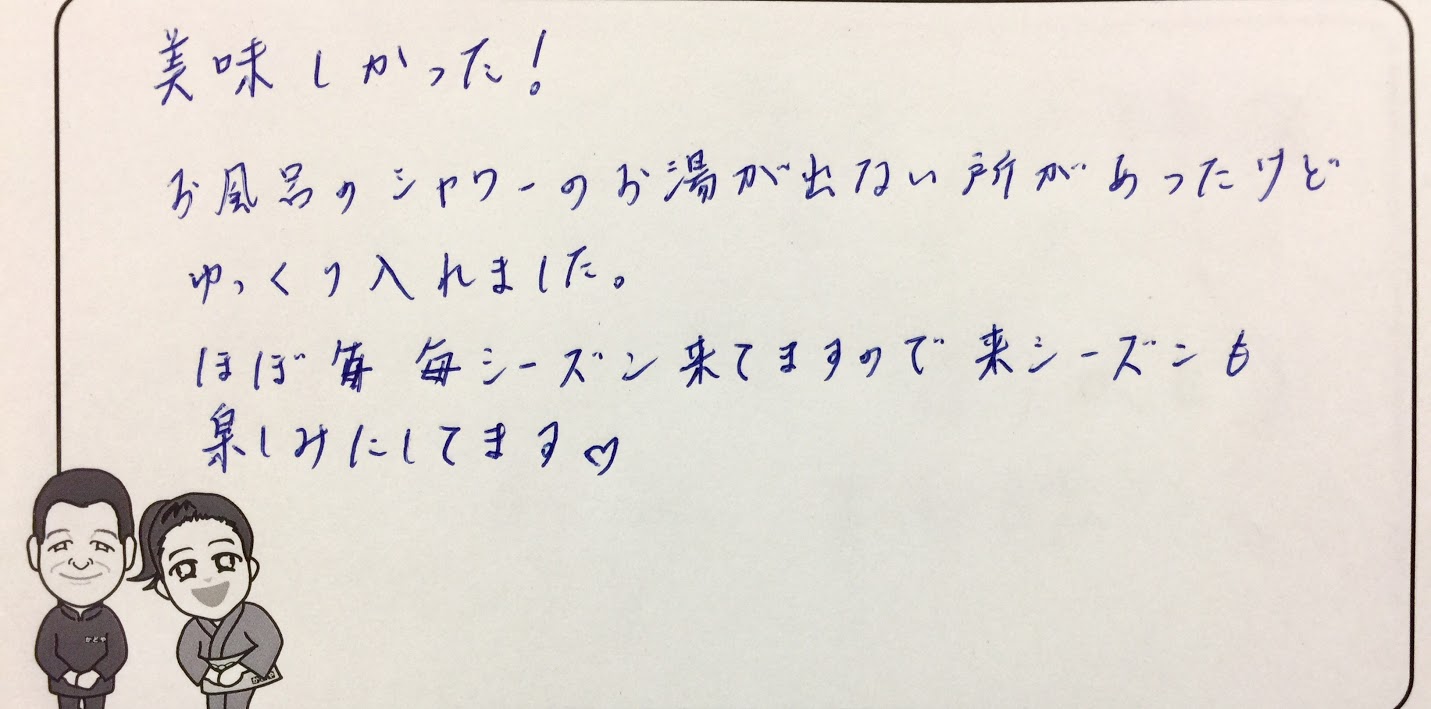 美味しかった!
お風呂のシャワーのお湯が出ない所があったけど
ゆっくり入れました。
ほぼ毎 毎シーズン来てますので来シーズンも
楽しみにしてます♡
かどや